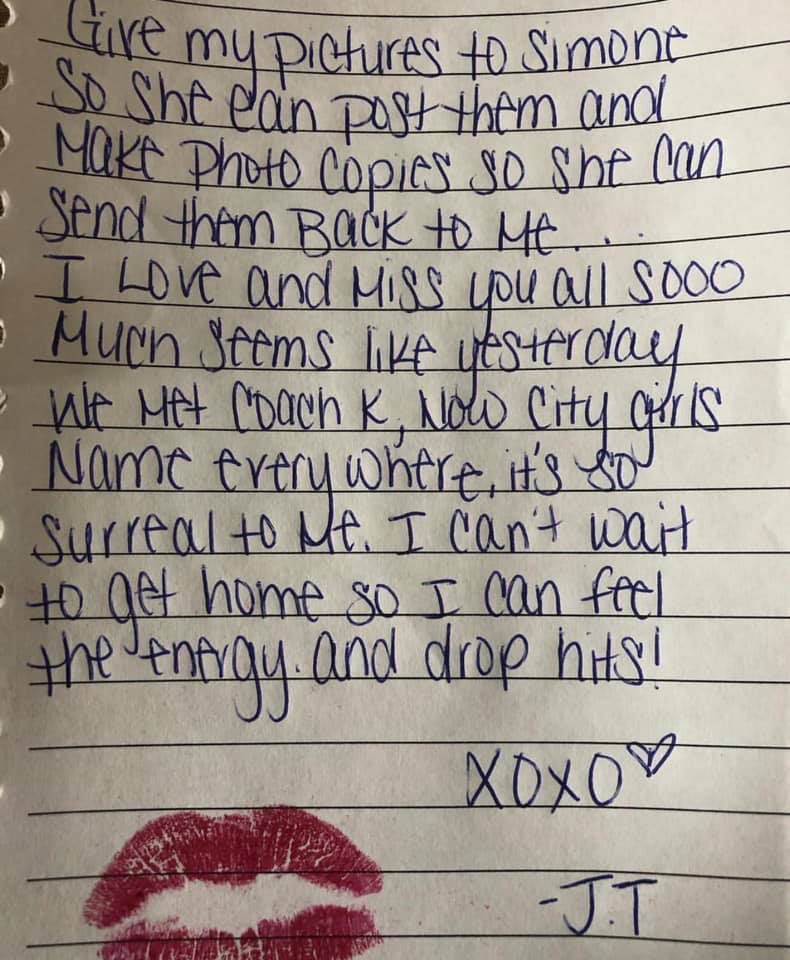 Give my pictures to Simone
So She can post them and
Make photo copies so she can
Send them Back to Me...
I Love and Miss you all sooo
Much seems like yesterday
We Met Coach K, Now City girls
Name everywhere, it's so
surreal to Me. I can't wait
to get home so I can feel
the energy. and drop hits!
XOXO♡
-J.T